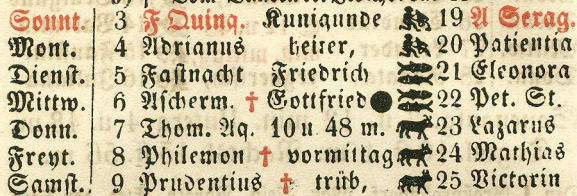 Sonnt. 3 F Quinq. Kunigunde 19 A Sexag.
Mont. 4 Adrianus heiter, 20 Patientia
Dienst. 5 Fastnacht Friedrich 21 Eleonora
Mittw. 6 Ascherm. † Gottfried 22 Pet. St.
Donn. 7 Thom. Aq. 10 u 48 m. 23 Lazarus
Freyt. 8 Philemon † vormittag 24 Mathias
Samst. 9 Prudentius † trüb, 25 Victorin